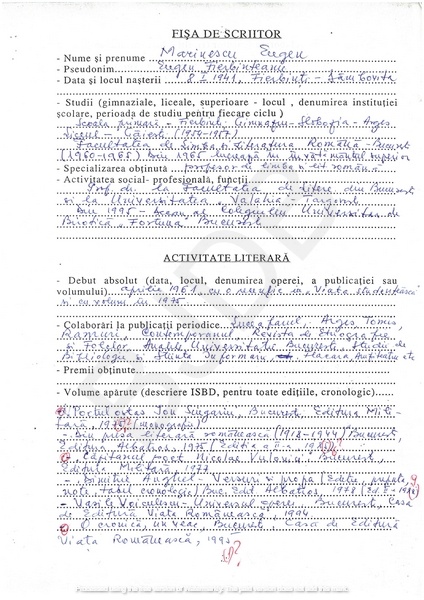 FIŞA DE SCRIITOR
- Nume şi prenume Marinescu Eugen
- Pseudonim Eugen Fierbinţeanu
- Data şi locul naşterii 8.I.1941, Fierbinţi - Dâmboviţa
- Studii (gimnaziale, liceale, superioare - locul , denumirea instituţiei
şcolare, perioada de studiu pentru fiecare ciclu )
Şcoala primară - Fierbinţi. Gimnaziu - Slobozia - Argeş
Liceul - Găeşti (1954-1957)
Facultatea de Limba şi Literatura Română - Bucureşti
(1960-1965) Din 1965 lucrează în învăţământul superior
- Specializarea obţinută profesor de limba şi lit. română
- Activitatea social- profesională, funcţii
Prof. dr. la Facultatea de Litere din Bucureşti
şi la Universitatea „Valahia - Târgovişte
Din 1995 - Decan al Colegiului Universitar de
Birotică „Fortuna Bucureşti
ACTIVITATE LITERARĂ
- Debut absolut (data, locul, denumirea operei, a publicaţiei sau
volumului) aprilie 1961, cu o recenzie în „Viaţa studenţească"
şi cu volum în 1975
- Colaborări la publicaţii periodice. Luceafărul, Argeş, Tomis,
Ramuri, Contemporanul, Revista de Etnografie
şi Folclor, Analele Universităţii Bucureşti, Studii de
Bibliologie şi Ştiinţa Informării, Flacăra
- Premii obţinute
- Volume apărute (descriere ISBD, pentru toate ediţiile, cronologic)
Portul ostaş Ion Şugariu, Bucureşti, Editura Mili-
tară, 1975 (monografie)
- Din presa literară românească (1918-1944) Bucureşti,
Editura Albatros, 1975 / Ediţia a II-a
Căpitanul poet Nicolae Vulovici, Bucureşti,
Editura Militară, 1977
- Dimitrie Anghel - Versuri şi proză (Ediţie, prefaţă,
note, tabel cronologic) Buc. Ed. Albatros, 1978
- Vasile Voiculescu - Universul operei, Bucureşti, Casa
de Editură Viaţa Românească, 1994
O cronică, un veac, Bucureşti, Casa de Editură
Viaţa Românească, 1995